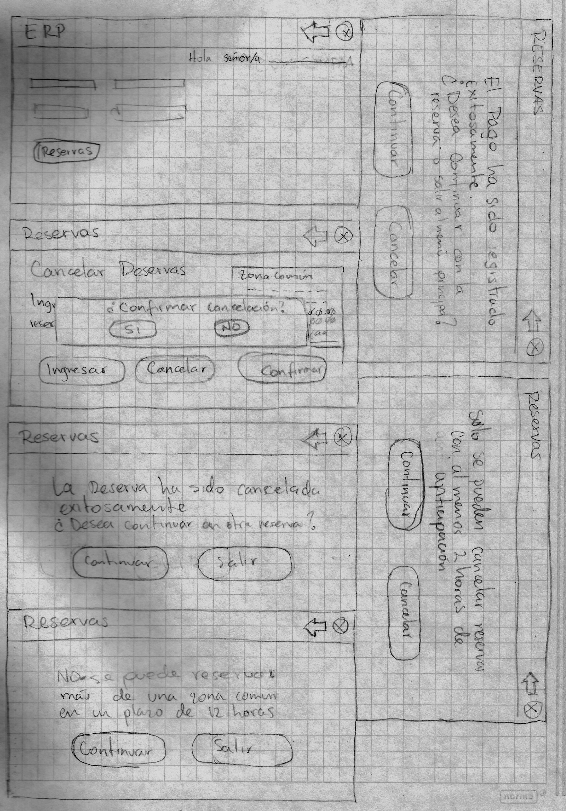 ERP
Hola señor/a
Reservas
Reservas
Cancelar Deservas
Zona Común
Ingr
reser
¿Confirmar cancelación?
SI
NO
Ingresar
Cancelar
Confirmar
Reservas
La Deserva ha sido cancelada
exitosamente
¿Desea continuar en otra reserva?
Continuar
Salir
Reservas
No se puede reservar
más de una zona común
en un plazo de 12 horas
Continuar
Salir
RESERVAS
El Pago ha sido registrado
exitosamente.
¿Desea Continuar con a
reserva o salir al menú principal?
Continuar
Cancelar
Reservas
Sólo se pueden cancelar reservas
con al menos 2 horas de
anticipación
Continuar
Cancelar
norma